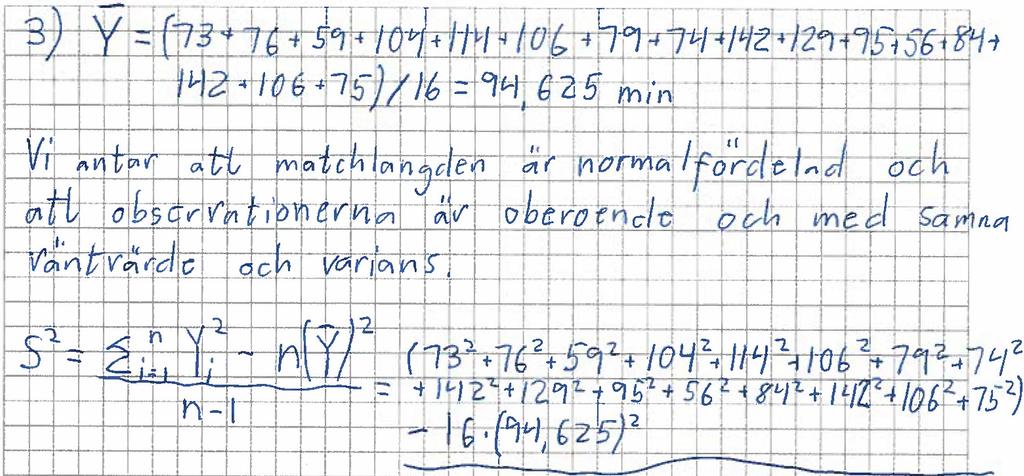 3) Ȳ = (73+76+59+104+114+106+79+74+142+129+95+56+84+
142+106+75)/16 = 94,625 min
Vi antar att matchlangden är normalfördelad och
att observationerna är oberoende och med samma
väntvärde och varians.
S² = (Σᵢ₌₁ⁿ Yᵢ² - n(Ȳ)²)/(n-1) = (73²+76²+59²+104²+114²+106²+79²+74²
+142²+129²+95²+56²+84²+142²+106²+75²)
- 16·(94,625)²